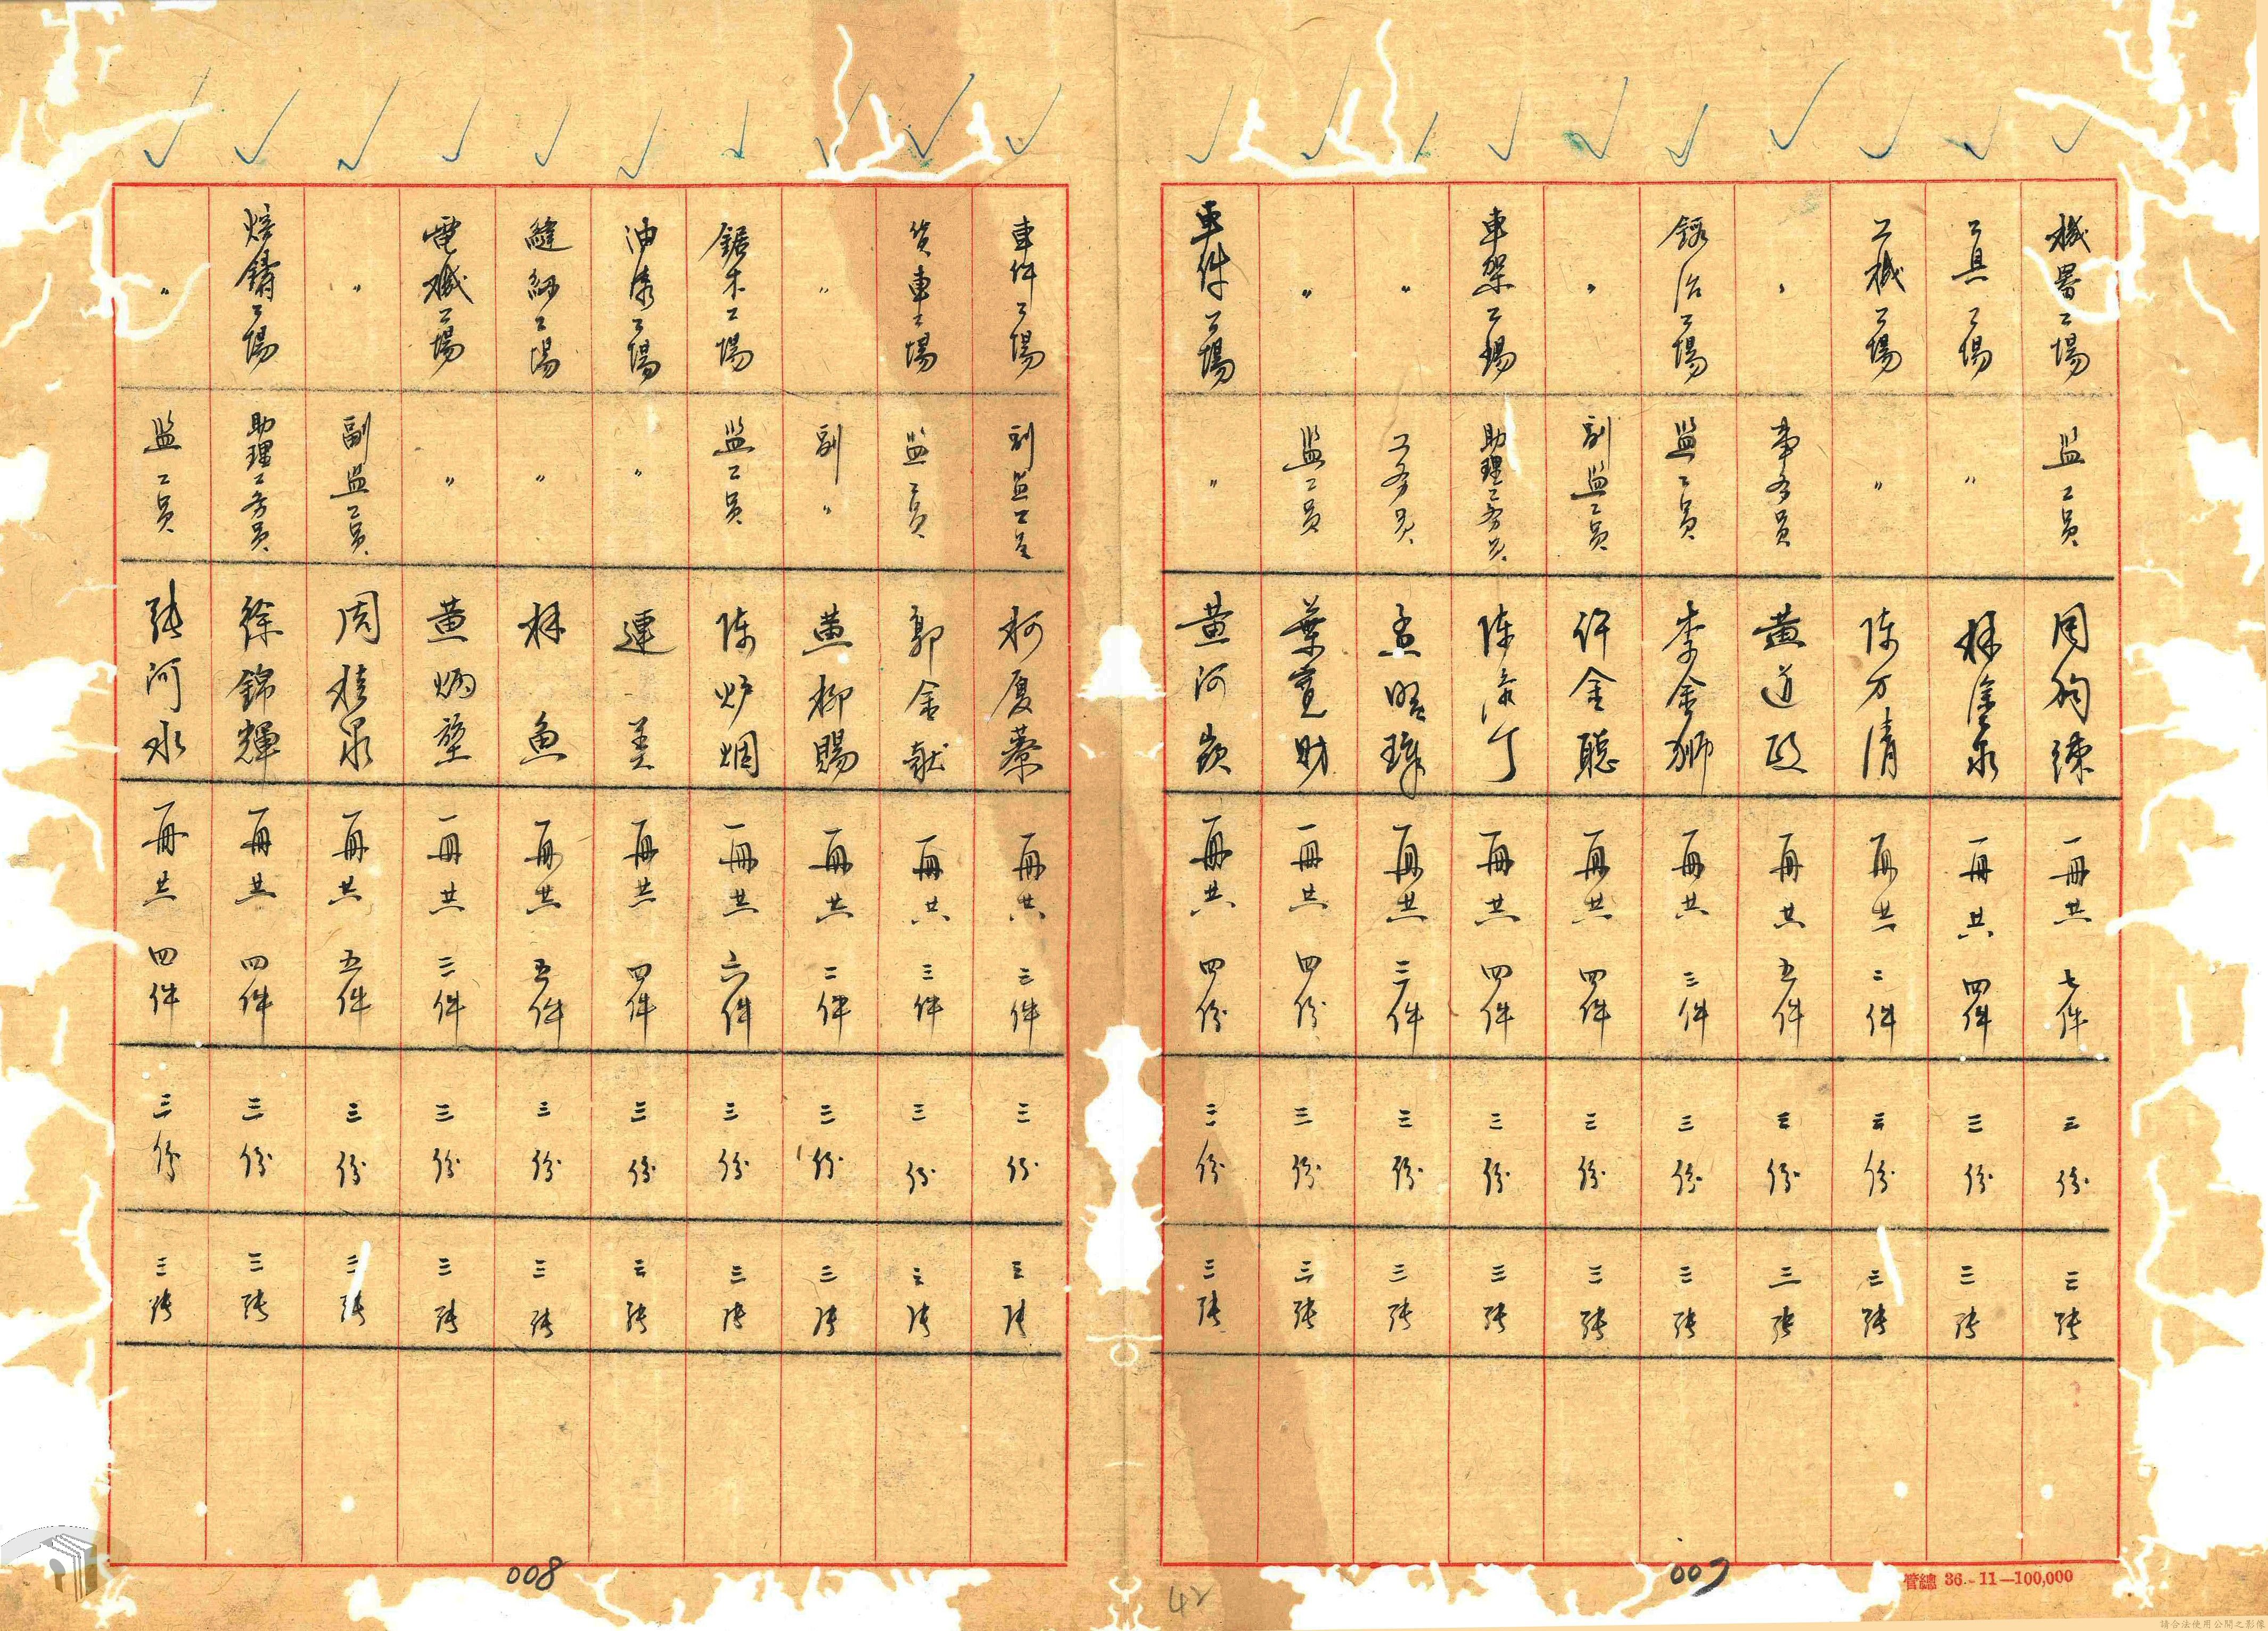 機器工場 監工員 周 一冊共七件 三份 三張
工具工場 〃 林 泉 一冊共四件 三份 三張
工機工場 〃 陳万清 一冊共二件 三份 三張
〃 事務員 黃道 一冊共五件 三份 三張
工場 監工員 李金獅 一冊共三件 三份 三張
〃 副監工員 許金聰 一冊共四件 三份 三張
車架工場 助理工務員 陳 一冊共四件 三份 三張
〃 工務員 孟 璋 一冊共三件 三份 三張
〃 監工員 葉寬財 一冊共四份 三份 三張
車件工場 〃 黃河 一冊共四份 三份 三張
管總 36.-11-100,000
007
42
車件工場 副監工員 柯 一冊共三件 三份 三張
貨車工場 監工員 郭金獻 一冊共三件 三份 三張
〃 副〃 黃柳賜 一冊共二件 三份 三張
鋸木工場 監工員 陳炉烟 一冊共六件 三份 三張
油漆工場 〃 連 一冊共四件 三份 三張
縫紉工場 〃 林魚 一冊共五件 三份 三張
電機工場 〃 黃炳 一冊共三件 三份 三張
〃 副監工員 周 泉 一冊共五件 三份 三張
鑄工場 助理工務員 徐錦輝 一冊共四件 三份 三張
〃 監工員 張河水 一冊共四件 三份 三張
008
請合法使用公開之影像